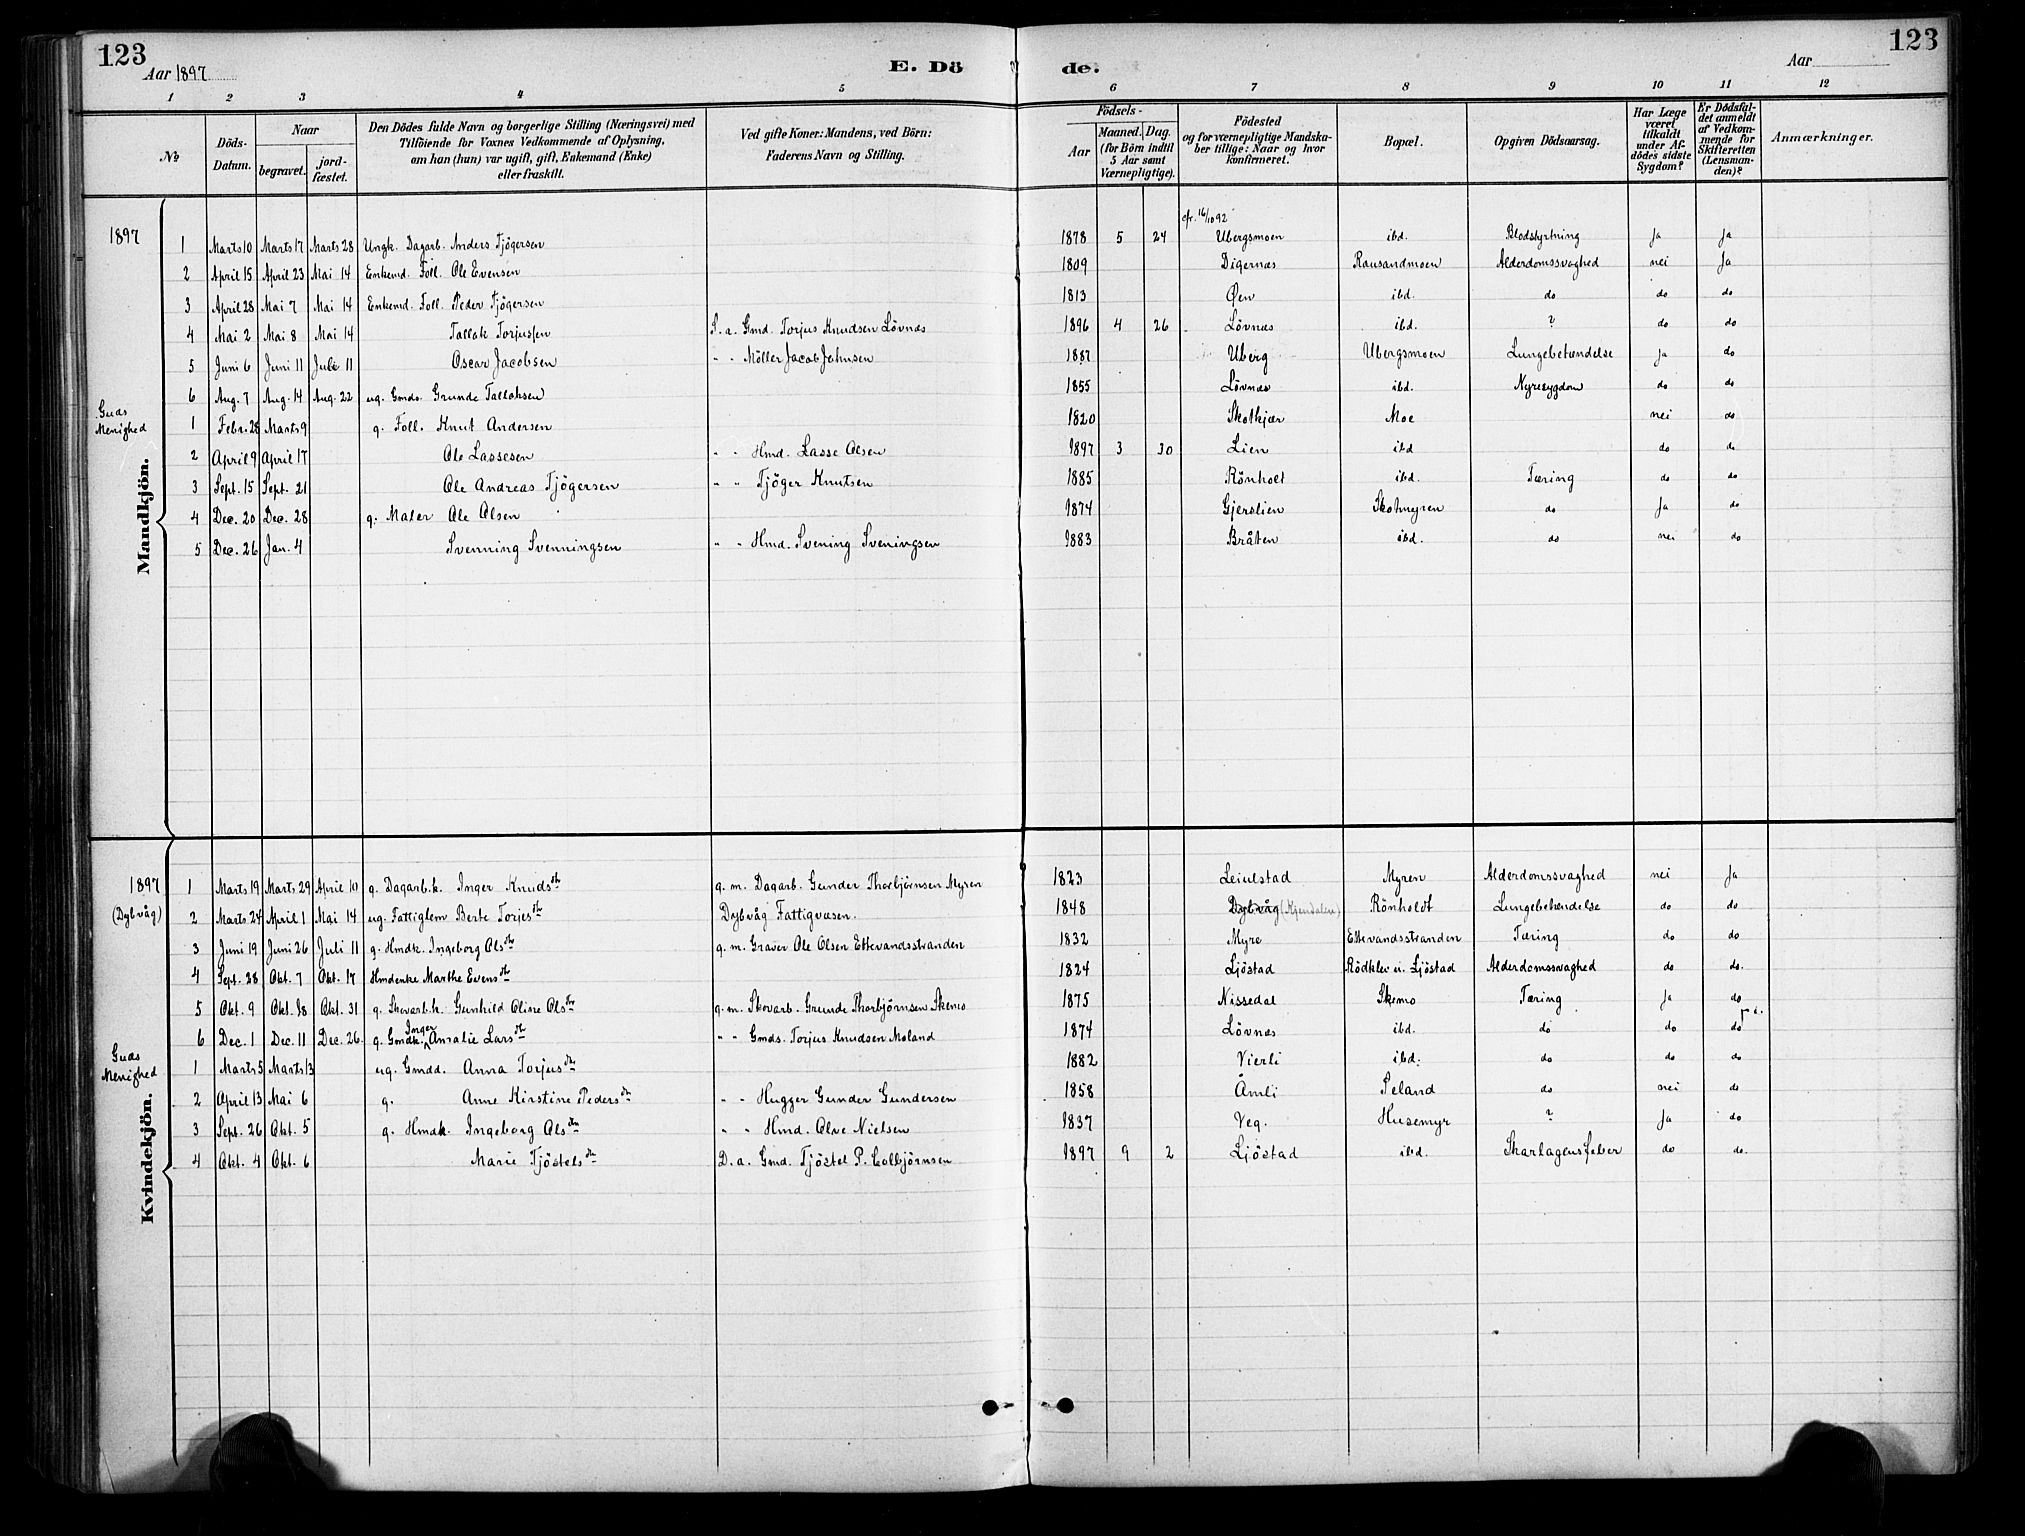 123
Aar 1897
E. Dö
de.
Aar
123
1 2 3 4 5 6 7 8 9 10 11 12
№
Döds-Datum.
Naar
begravet.
jord-fæstet.
Den Dödes fulde Navn og borgerlige Stilling (Næringsvei) med
Tilföiende for Voxnes Vedkommende af Oplysning,
om han (hun) var ugift, gift, Enkemand (Enke)
eller fraskilt.
Ved gifte Koner: Mandens, ved Börn:
Faderens Navn og Stilling.
Födsels-
Aar
Maaned. Dag.
(for Börn indtil
5 Aar samt
Værnepligtige).
Födested
og for værnepligtige Mandska-
ber tillige: Naar og hvor
konfirmeret.
Bopæl.
Opgiven Dödsaarsag.
Har Læge
været
tilkaldt
under Af-
dödes sidste
Sygdom?
Er Dödsfal-
det anmeldt
af Vedkom-
mende for
Skifteretten
(Lensman-
den)?
Anmærkninger.
1897
cfr. 16/10 92
1 Marts 10 Marts 17 Marts 28 Ungk. Dagarb. Anders Tjögersen 1878 5 24 Ubergsmoen ibd. Blodstyrtning Ja Ja
2 April 15 April 23 Mai 14 Enkemd. Foll. Ole Evensen 1809 Digernæs Rausandmoen Alderdomssvaghed nei Ja
3 April 28 Mai 7 Mai 14 Enkemd. Foll. Peder Tjögersen 1813 Øen ibd. do do do
4 Mai 2 Mai 8 Mai 14 Tallak Torjussen S. a. Gmd. Torjus Knudsen Lövnæs 1896 4 26 Lövnæs ibd. ? do do
5 Juni 6 Juni 11 Juli 11 Oscar Jacobsen " " Möller Jacob Johnsen 1887 Uberg Ubergsmoen Lungebetændelse Ja do
6 Aug. 7 Aug. 14 Aug. 22 ug. Gmds. Grunde Tallaksen 1855 Lövnæs ibd. Nyresygdom do do
Gjus Menighed
1 Febr. 28 Marts 9 g. Foll. Knut Andersen 1820 Skotkjær Moe nei do
2 April 9 April 17 Ole Lassesen " " Hmd. Lasse Olsen 1897 3 30 Lien ibd do do
3 Sept. 15 Sept. 21 Ole Andreas Tjögersen " " Tjöger Knutsen 1885 Rönholt ibd. Tæring do do
4 Dec. 20 Dec. 28 g. Maler Ole Olsen 1874 Gjerslien Skotmyren do Ja do
5 Dec. 26 Jan. 4 Svenning Svenningsen " " Hmd. Svening Sveningsen 1883 Bråten ibd. do nei do
Mandkjön.
1897
(Dybvåg)
1 Marts 19 Marts 29 April 10 g. Dagarb.k. Inger Knudsdtr 
g. m. Dagarb. Gunder Thorbjørnsen Myren 1823 Leiulstad Myren Alderdomssvaghed nei Ja
2 Marts 24 April 1 Mai 14 ug. Fattiglem Berte Torjesdtr Dybvåg Fattigvæsen. 1848 Dybvåg (Kjendalen) Rönholdt Lungebetændelse do do
3 Juni 19 Juni 26 Juli 11 g. Hmdk. Ingeborg Olsdtr g. m. Graver Ole Olsen Ettevandsstranden 1832 Myre Ettevandsstranden Tæring do do
4 Sept. 28 Okt. 7 Okt. 17 Hmdenke Marthe Evensdtr 1824 Ljöstad Rödklev u. Ljöstad Alderdomssvaghed do do.
5 Okt. 9 Okt. 18 Okt. 31 g. Skovarb.k. Gunhild Oline Olsdtr g. m. Skovarb. Grunde Thorbjørnsen Skemo 1875 Nissedal Skemo Tæring Ja do
6 Dec. 1 Dec. 11 Dec. 26. g. Gmdk. Inger Amalie Larsdtr " " Gmds. Torjus Knudsen Moland 1874 Lövnæs ibd. do do do
Gjus Menighed
1 Marts 5 Marts 13 ug. Gmdd. Anna Torjusdtr 1882 Vierli ibd. do do do
2 April 13 Mai 6 g. Anne Kirstine Pedersdtr " " Hugger Gunder Gundersen 1858 Åmli Seland do nei do
3 Sept. 26 Okt. 5 g. Hmdk. Ingeborg Olsdtr " " Hmd. Olve Nielsen 1837 Veg. Husemyr ? Ja do
4 Okt. 4 Okt. 6 Marie Tjöstelsdtr D. a. Gmd. Tjöstel P. Colbjörnsen 1897 9 2 Ljöstad ibd. Skarlagensfeber do do.
Kvindekjön.